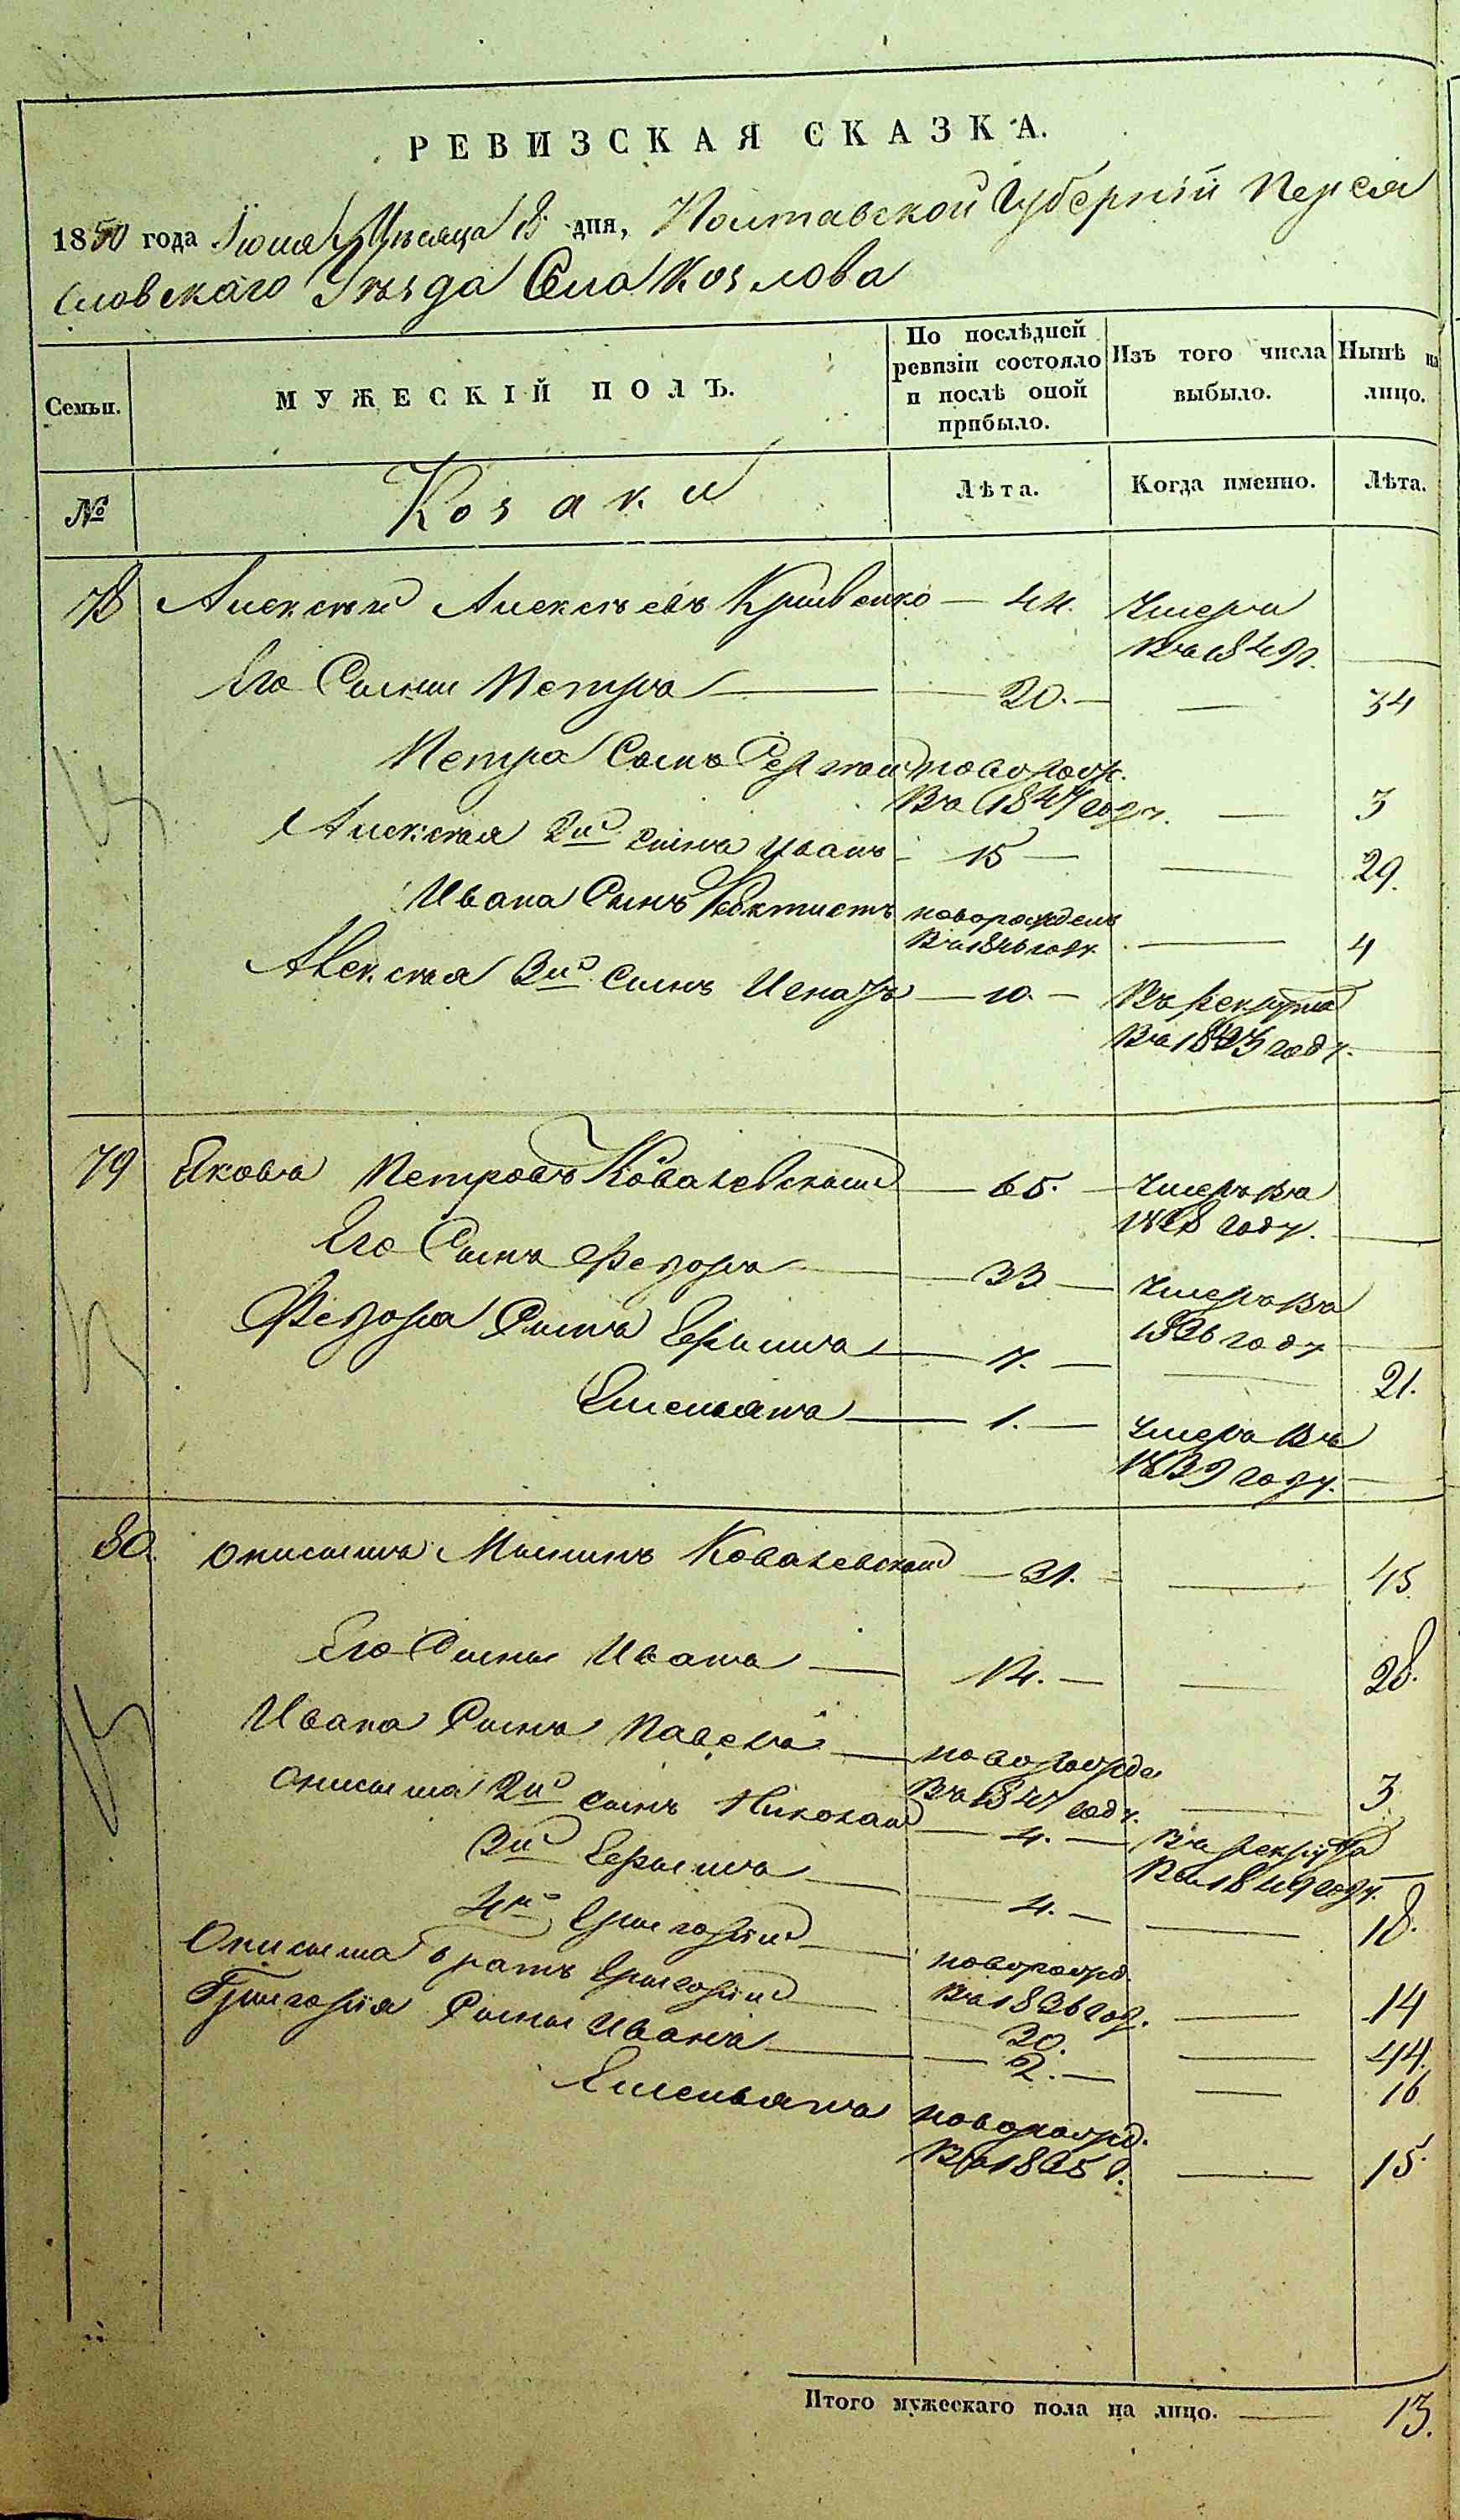 РЕВИЗСКАЯ СКАЗКА.
1850 года Іюня Мѣсяца 18 дня, Полтавской Губерніи Перея
словскаго Уѣзда Села Козлова
Семьи.
МУЖЕСКІЙ ПОЛЪ.
По послѣдней ревизіи состояло и послѣ оной прибыло.
Изъ того числа выбыло.
Нынѣ на лицо.
№
Козаки
Лѣта.
Когда именно.
Лѣта.
78 Алексѣй Алексѣевъ Кривенко — 44. Умеръ
въ 1849 г. —
Его Сыны Петръ — 20. — — 34
Петра Сынъ Сергѣй новорож.
въ 1847 году. — 3
Алексѣя 2й сынъ Иванъ — 15 — — 29.
Ивана Сынъ Феоктистъ новорожденъ
въ 1846 году. — 4
Алексѣя 3й Сынъ Игнатъ — 10. — въ рекрута
въ году. —
79 Яковъ Петровъ Ковалевский — 65. — Умеръ въ
1838 году. —
Его Сынъ Федоръ — 33 — Умеръ въ
1836 году —
Федора Сынъ Ефимъ — 7. — — 21.
Емельянъ — 1. — Умеръ въ
1839 году. —
80. Онисимъ Ковалевский — 31. — — 45.
Его Сыны Иванъ — 14. — — 28.
Ивана Сынъ Павелъ — новорожде
въ 1847 году. — 3
Онисима 2й сынъ Николай — 4. — въ рекрута
въ 1849 году. —
3й Ефимъ — 4. — — 18.
4й Григорій — новорожд.
въ 1836 год. — 14
Онисима братъ Григорій — — 44.
Григорія Сыны Иванъ — 2. — — 16
Емельянъ новорожд.
въ 1835 г. — 15.
Итого мужескаго пола на лицо. — 13.